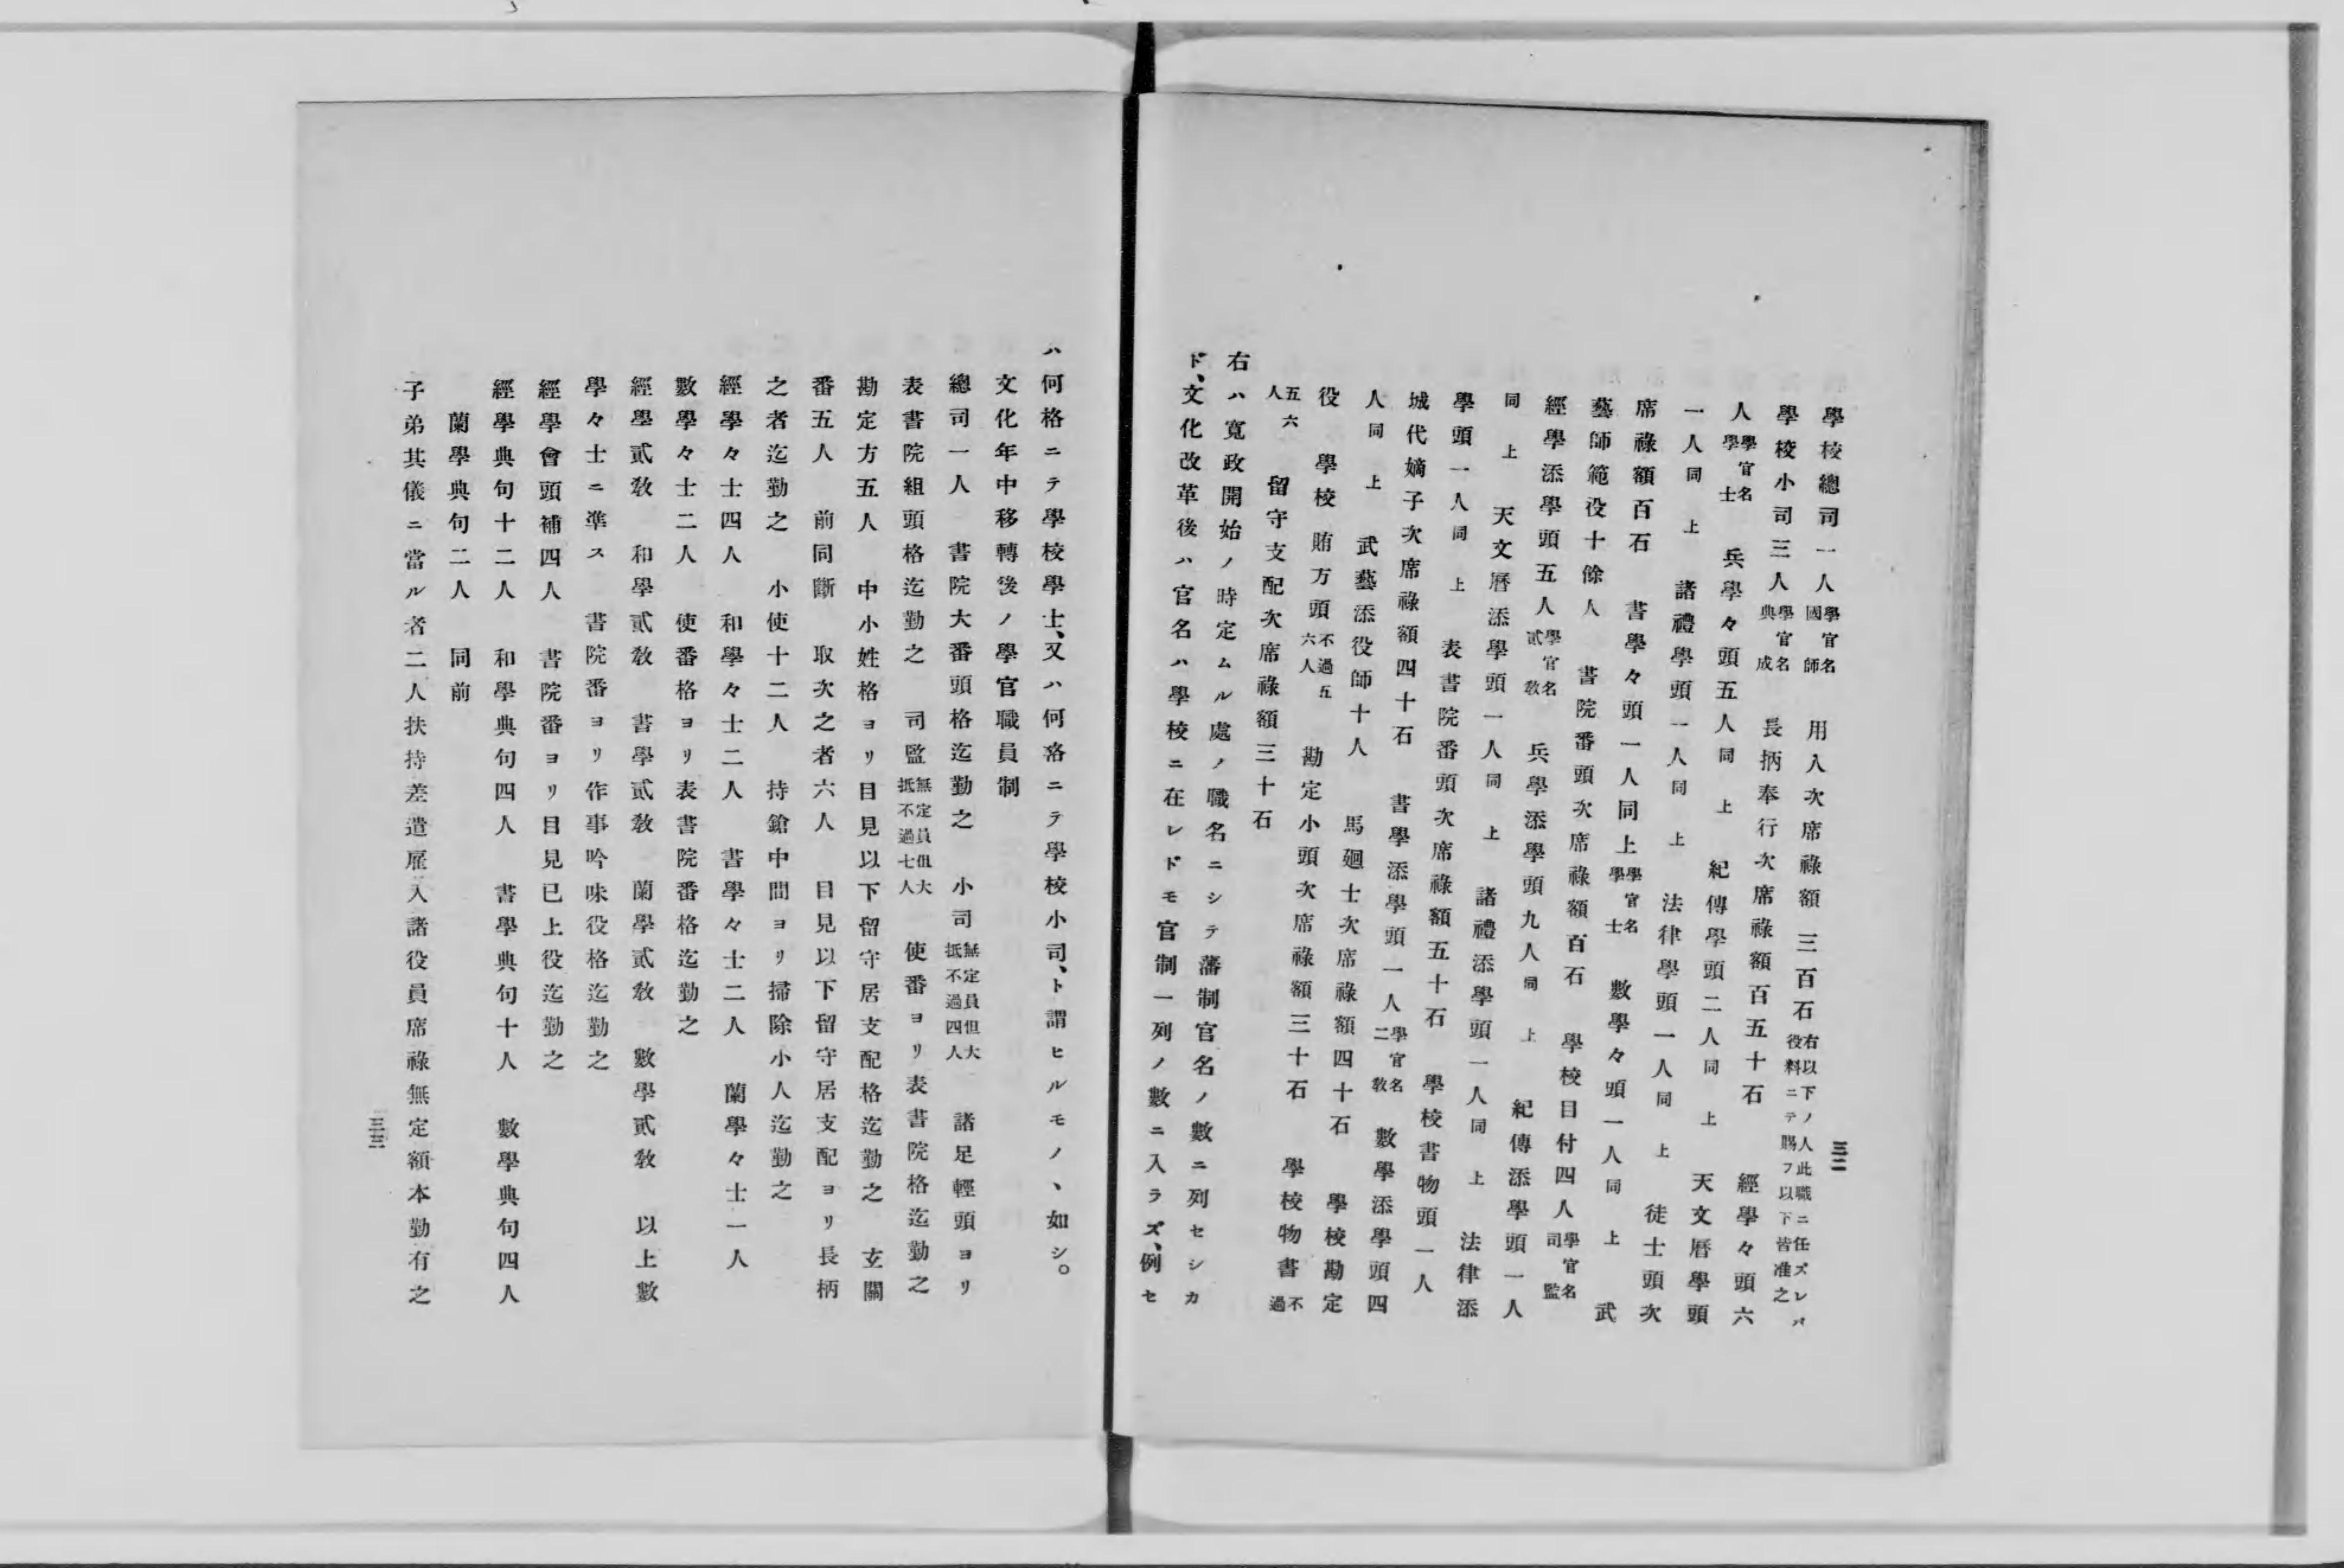 三二
學校總司一人學官名國師　用人次席祿額三百石右以下ノ人此職ニ任ズレバ役料ニテ賜フ以下皆准之
學校小司三人學官名典成　長柄奉行次席祿額百五十石　經學々頭六
人學官名學士　兵學々頭五人同上　紀傳學頭二人同上　天文曆學頭
一人同上　諸禮學頭一人同上　法律學頭一人同上　徒士頭次
席祿額百石　書學々頭一人同上學官名學士　數學々頭一人同上　武
藝師範役十餘人　書院番頭次席祿額百石　學校目付四人學官名司監
經學添學頭五人學官名貳敎　兵學添學頭九人同上　紀傳添學頭一人
同上　天文曆添學頭一人同上　諸禮添學頭一人同上　法律添
學頭一人同上　表書院番頭次席祿額五十石　學校書物頭一人
城代嫡子次席祿額四十石　書學添學頭一人學官名二敎　數學添學頭四
人同上　武藝添役師十人　馬廻士次席祿額四十石　學校勘定
役　學校賄方頭不過五六人　勘定小頭次席祿額三十石　學校物書不過
五六人　留守支配次席祿額三十石
右ハ寬政開始ノ時定ムル處ノ職名ニシテ藩制官名ノ數ニ列セシカ
ド、文化改革後ハ官名ハ學校ニ在レドモ官制一列ノ數ニ入ラズ、例セ
ハ何格ニテ學校學士、又ハ何格ニテ學校小司、ト謂ヒルモノヽ如シ。
文化年中移轉後ノ學官職員制
總司一人　書院大番頭格迄勤之　小司無定員但大抵不過四人　諸足輕頭ヨリ
表書院組頭格迄勤之　司監無定員但大抵不過七人　使番ヨリ表書院格迄勤之
勘定方五人　中小姓格ヨリ目見以下留守居支配格迄勤之　玄關
番五人　前同斷　取次之者六人　目見以下留守居支配ヨリ長柄
之者迄勤之　小使十二人　持鎗中間ヨリ掃除小人迄勤之
經學々士四人　和學々士二人　書學々士二人　蘭學々士一人
數學々士二人　使番格ヨリ表書院番格迄勤之
經學貳敎　和學貳敎　書學貳敎　蘭學貳敎　數學貳敎　以上數
學々士ニ準ス　書院番ヨリ作事吟味役格迄勤之
經學會頭補四人　書院番ヨリ目見已上役迄勤之
經學典句十二人　和學典句四人　書學典句十人　數學典句四人
蘭學典句二人　同前
子弟其儀ニ當ル者二人扶持差遣雇入諸役員席祿無定額本勤有之
三三